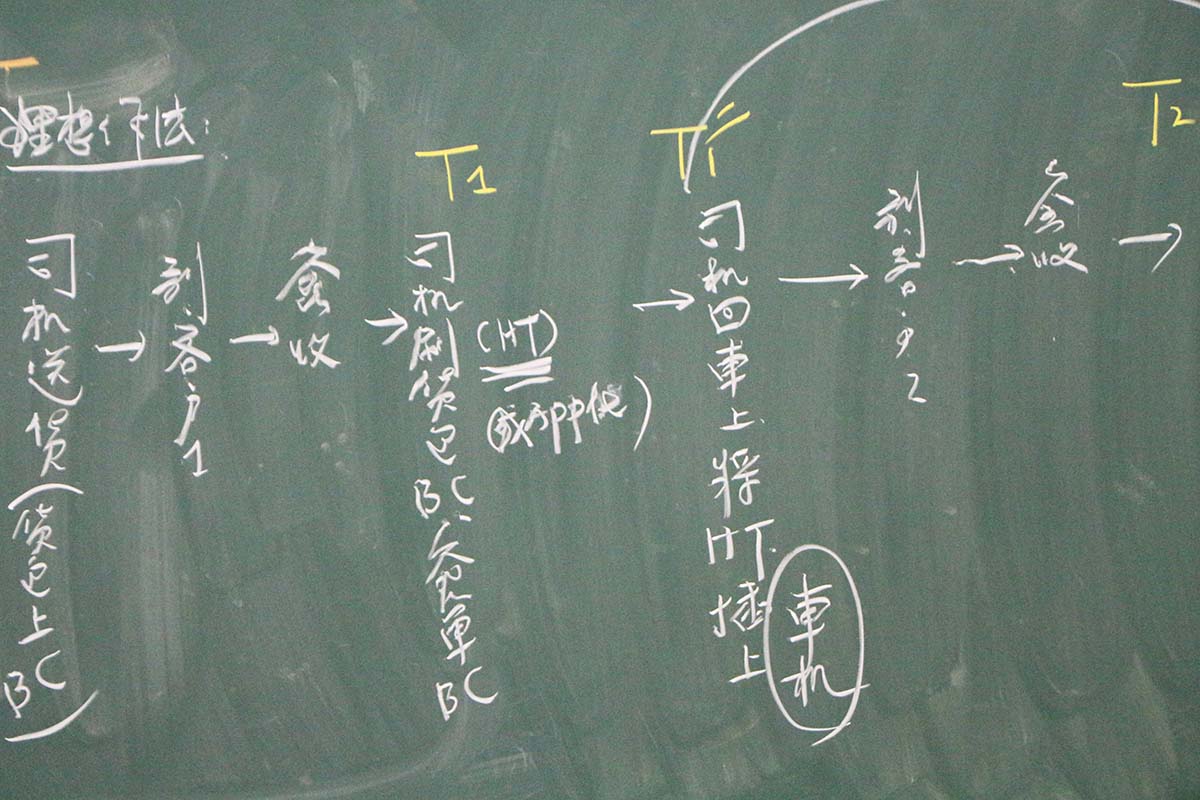 理想作法:
司机送货(货包上BC)
→
到客户1
→
签收
→
T1
司机刷货包BC、签單BC
(HT)
(或APP中代)
→
T1"
司机回車上將HT插上
車机
→
到客户2
→
签收
→
T2